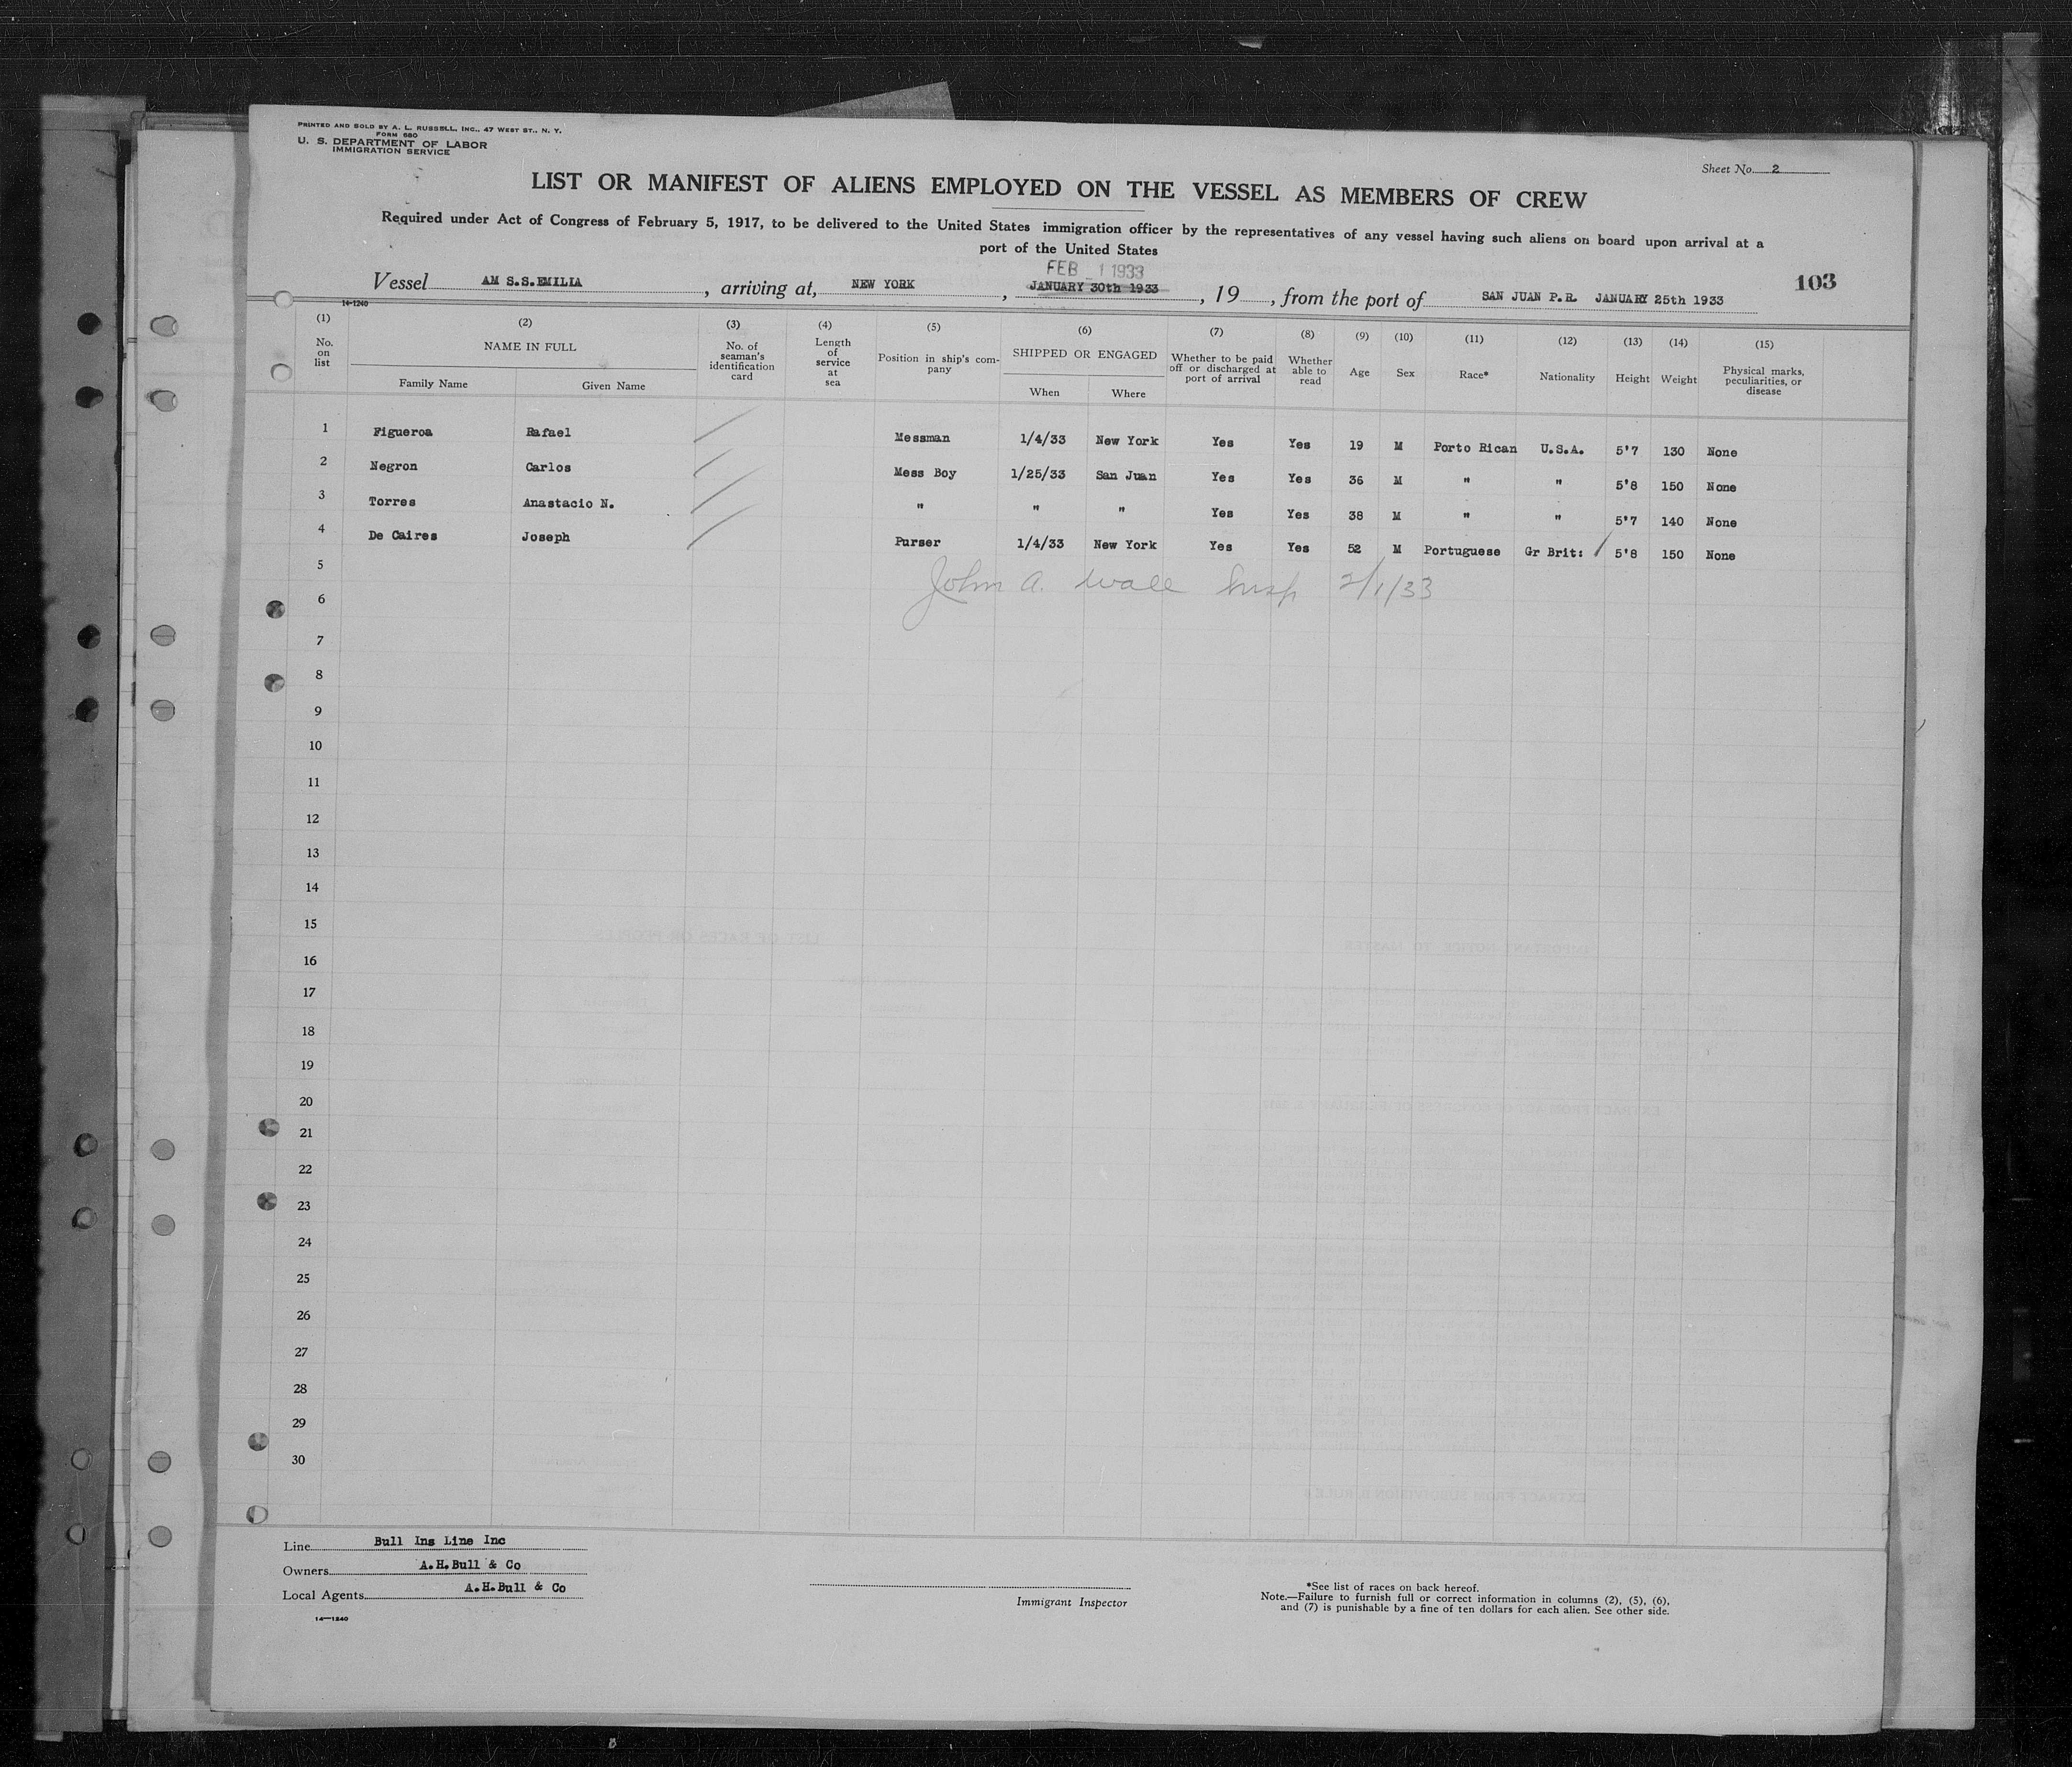 PRINTED AND SOLD BY A. L. RUSSELL, INC., 47 WEST ST., N. Y.
FORM 680
U. S. DEPARTMENT OF LABOR
IMMIGRATION SERVICE
Sheet No. 2
LIST OR MANIFEST OF ALIENS EMPLOYED ON THE VESSEL AS MEMBERS OF CREW
Required under Act of Congress of February 5, 1917, to be delivered to the United States immigration officer by the representatives of any vessel having such aliens on board upon arrival at a
port of the United States
FEB 1 1933
103
Vessel AM S.S.EMILIA , arriving at, NEW YORK , JANUARY 30th 1933 , 19 , from the port of SAN JUAN P.R. JANUARY 25th 1933
14-1240
(1) (2) (3) (4) (5) (6) (7) (8) (9) (10) (11) (12) (13) (14) (15)
No. on list
NAME IN FULL
Family Name Given Name
No. of seaman's identification card
Length of service at sea
Position in ship's company
SHIPPED OR ENGAGED
When Where
Whether to be paid off or discharged at port of arrival
Whether able to read
Age
Sex
Race*
Nationality
Height
Weight
Physical marks, peculiarities, or disease
1 Figueroa Rafael Messman 1/4/33 New York Yes Yes 19 M Porto Rican U.S.A. 5'7 130 None
2 Negron Carlos Mess Boy 1/25/33 San Juan Yes Yes 36 M " " 5'8 150 None
3 Torres Anastacio N. " " " Yes Yes 38 M " " 5'7 140 None
4 De Caires Joseph Purser 1/4/33 New York Yes Yes 52 M Portuguese Gr Brit: 5'8 150 None
5
John A. Wall Insp 2/1/33
6
7
8
9
10
11
12
13
14
15
16
17
18
19
20
21
22
23
24
25
26
27
28
29
30
Line Bull Ins Line Inc
Owners A.H.Bull & Co
Local Agents A.H.Bull & Co
14-1240
Immigrant Inspector
*See list of races on back hereof.
Note.—Failure to furnish full or correct information in columns (2), (5), (6),
and (7) is punishable by a fine of ten dollars for each alien. See other side.